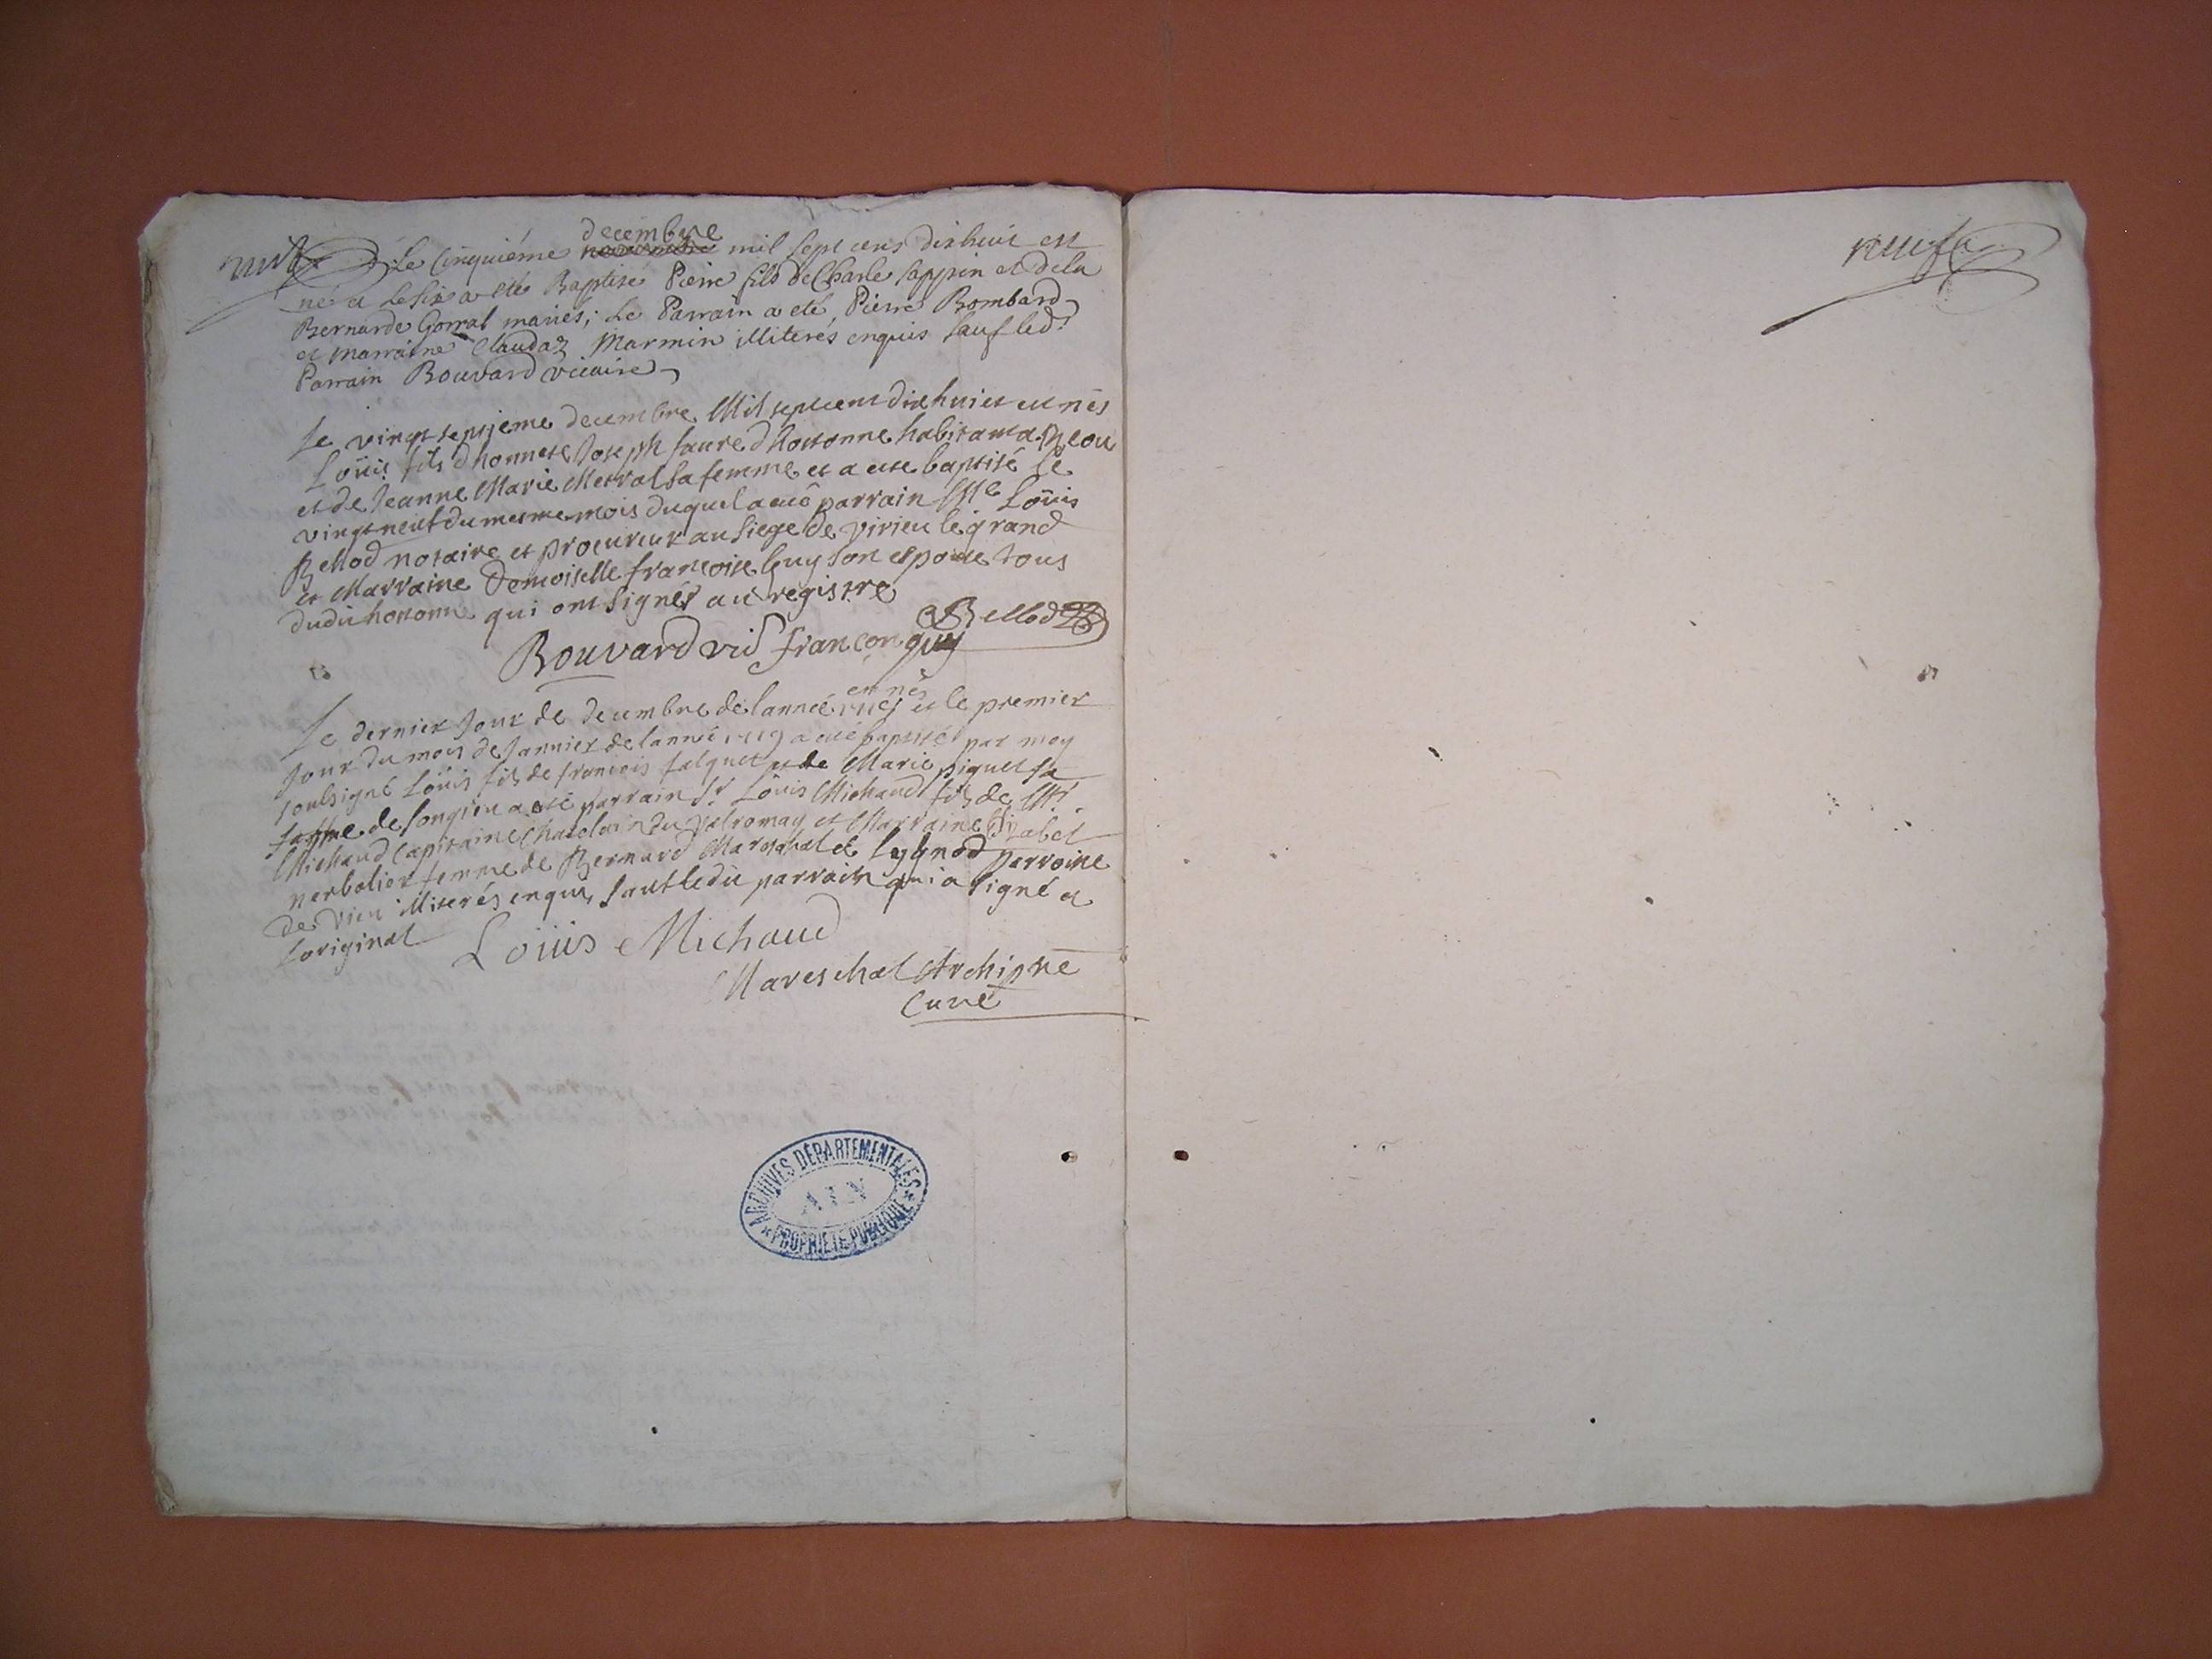 decembre
Le Cinquiéme novembre mil sept cens dixhuit est
né et le six a eté Baptisé Pierre fils de Charle Sappin et de la
Bernarde Gorral mariés; Le Parrain a eté, Pierre Bombard
et marraine Claudaz Marmin illiterés enquis sauf led.t
Parrain Bouvard vicaire
Le vingt septjeme decembre Mil sept cent dix huict est nés
Loüis fils d'honneste Joseph faure d'hostonne habitant a
et de Jeanne Marie Merral sa femme et a esté baptisé le
vingt neuf du mesme mois duquel a esté parrain Me Loüis
Bellod notaire et procureur au siege de Virieu le grand
et Marraine Demoiselle francoise Guy son espouse tous
dudit hostonne qui ont signés au registre
Bellod
Bouvard vic françon guy
est nés
Le dernier Jour de decembre de l'année et le premier
Jour du mois de Janvier de l'année 1719 a esté baptisé par moy
soubsigné Loüis fils de francois falquet et de Marie piquet sa
famme de songieu a esté parrain Sr Loüis Michaud fils de Mr
Michaud Capitaine Chatelain du Valromay et Marraine Ysabel
nerbolier femme de Bernard Mareschal de Lygnod parroisse
de Vieu illiterés enquis sauf ledit parrain qui a signé a
L'original Loüis Michaud
Mareschal Archiprê
Curé
ARCHIVES DÉPARTEMENTALES
AIN
PROPRIÉTÉ PUBLIQUE
neuf